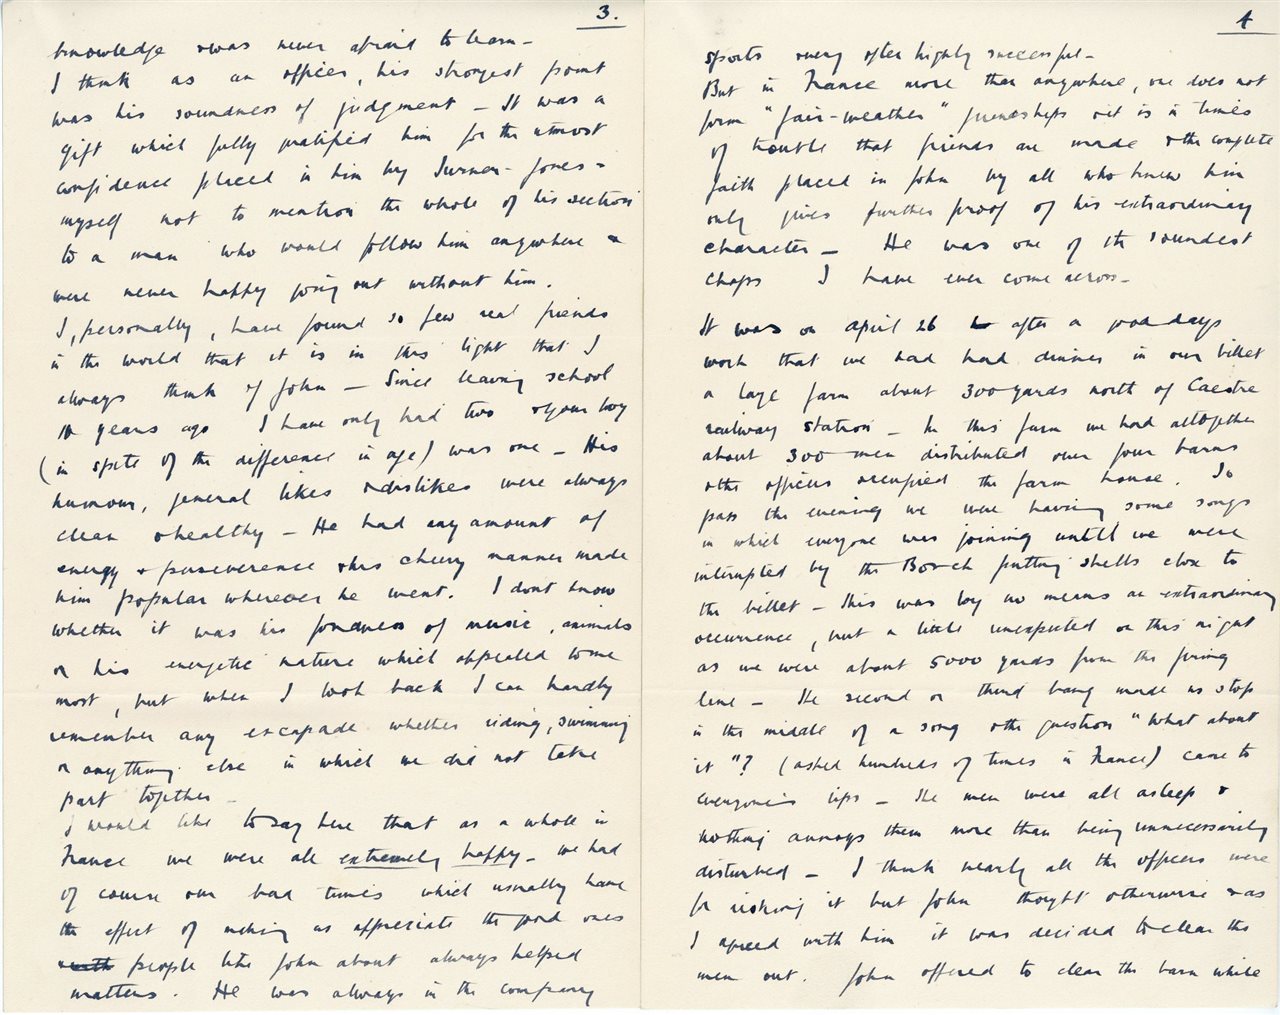 3.
knowledge & was never afraid to learn –
I think as an officer, his strongest point
was his soundness of judgment – It was a
gift which fully justified him for the utmost
confidence placed in him by Turner-Jones –
myself not to mention the whole of his section
to a man who would follow him anywhere &
were never happy going out without him.
I, personally, have found so few real friends
in the world that it is in this light that I
always think of John – Since leaving school
10 years ago I have only had two & your boy
(in spite of the difference in age) was one – His
humour, general likes & dislikes were always
clean & healthy – He had any amount of
energy & perseverence & his cheery manner made
him popular wherever he went. I dont know
whether it was his fondness of music, animals
or his energetic nature which appealed to me
most, but when I look back I can hardly
remember any escapade whether riding, swimming
or anything else in which we did not take
part together –
I would like to say here that as a whole in
France we were all extremely happy – we had
of course our bad times which usually have
the effect of making us appreciate the good ones
& with people like John about always helped
matters. He was always in the company
4
sports very often highly successful –
But in France more than anywhere, one does not
form "fair-weather" friendships & it is in times
of trouble that friends are made & the complete
faith placed in John by all who knew him
only gives further proof of his extraordinary
character – He was one of the soundest
chaps I have ever come across –
It was on April 26 after a good days
work that we had had dinner in our billet
a large farm about 300 yards north of Caestre
railway station – In this farm we had altogether
about 300 men distributed over four barns
& the officers occupied the farm house. To
pass the evening we were having some songs
in which everyone was joining until we were
interupted by the Bosch putting shells close to
the billet – This was by no means an extraordinary
occurrence, but a little unexpected on this night
as we were about 5000 yards from the firing
line – The second or third bang made us stop
in the middle of a song & the question "What about
it"? (asked hundreds of times in France) came to
everyone's lips – The men were all asleep &
nothing annoys them more than being unnecessarily
disturbed – I think nearly all the officers were
for risking it but John thought otherwise & as
I agreed with him it was decided to clear the
men out. John offered to clear the barn while